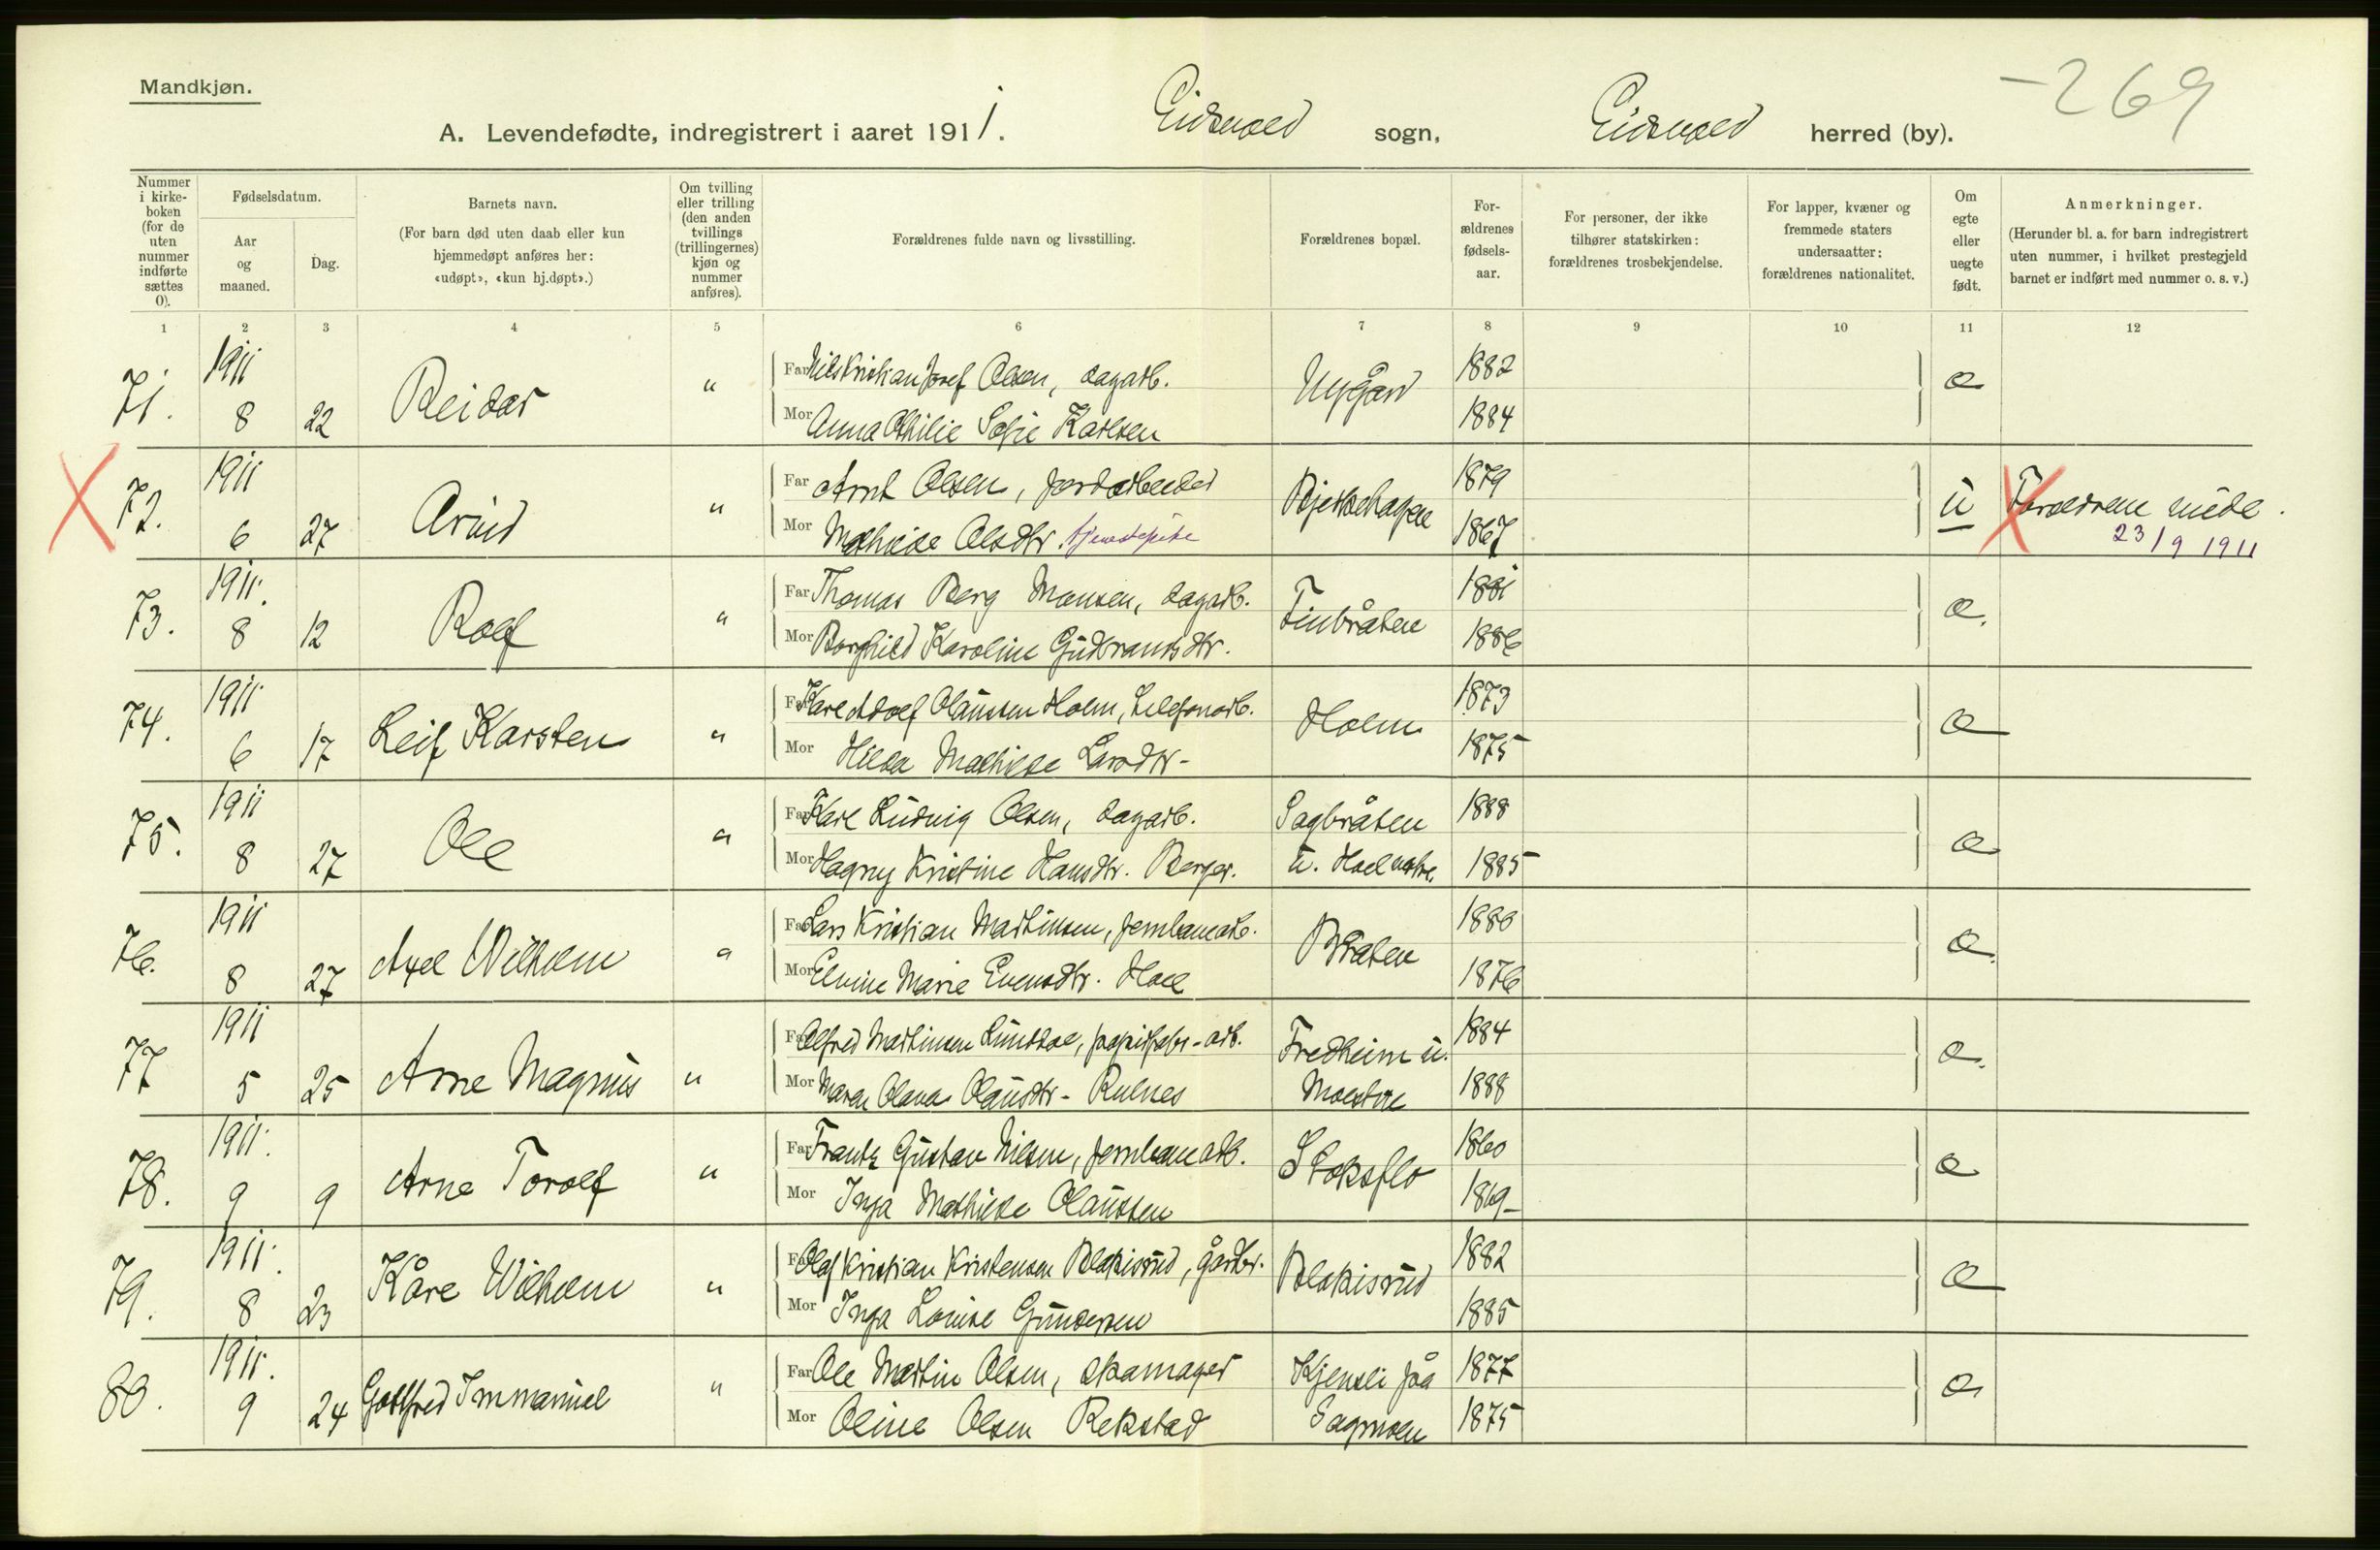 Mandkjøn.
-269
A. Levendefødte, indregistrert i aaret 1911. Eidsvold sogn, Eidsvold herred (by).
Nummer i kirkeboken (for de uten nummer indførte sættes 0).
Fødselsdatum.
Aar og maaned.
Dag.
Barnets navn.
(For barn død uten daab eller kun hjemmedøpt anføres her: «udøpt», «kun hj.døpt».)
Om tvilling eller trilling (den anden tvillings (trillingernes) kjøn og nummer anføres).
Forældrenes fulde navn og livsstilling.
Forældrenes bopæl.
Forældrenes fødselsaar.
For personer, der ikke tilhører statskirken: forældrenes trosbekjendelse.
For lapper, kvæner og fremmede staters undersaatter: forældrenes nationalitet.
Om egte eller uegte født.
Anmerkninger.
(Herunder bl. a. for barn indregistrert uten nummer, i hvilket prestegjeld barnet er indført med nummer o. s. v.)
1 2 3 4 5 6 7 8 9 10 11 12
71. 1911 8 22 Reidar " Far Nils Kristian Josef Olsen, dagarb. Nygård 1882 e
Mor Anna Othilie Sofie Karlsen 1884
72. 1911 6 27 Arvid " Far Arnt Olsen, jordarbeider Bjerkehagen 1879 u Forældrene viede.
Mor Mathilde Olsdtr. tjenestepike 1867 23/9 1911
73. 1911. 8 12 Rolf " Far Thomas Berg Monsen, dagarb. Finbråten 1881 e.
Mor Borghild Karoline Gudbrandsdtr. 1886
74. 1911 6 17 Leif Karsten " Far Karl Adolf Olaussen Holm, telefonarb. Holm 1873 e
Mor Hilda Mathilde Larsdtr- 1875
75. 1911 8 27 Ole " Far Karl Ludvig Olsen, dagarb. Sagbråten 1888 e
Mor Hagny Kristine Hansdtr. Berger. u. Hoel 1885
76. 1911 8 27 Axel Wilhelm " Far Lars Kristian Martinsen, jernbanearb. Bråten 1880 e.
Mor Elvine Marie Evensdtr. Hoel 1876
77 1911 5 25 Arne Magnus " Far Alfred Martinsen Lundbol, papirfabr-arb. Fredheim u. 1884 e.
Mor Maren Olava Olausdtr- Rulnes Moestue 1888
78. 1911. 9 9 Arne Torolf " Far Frantz Gustav Nilsen, jernbanearb. Stoksflo 1860 e
Mor Inga Mathilde Olaussen 1869-
79. 1911. 8 23 Kåre Wilhelm " Far Olaf Kristian Kristensen Blakisrud, gårdbr. Blakisrud 1882 e
Mor Inga Louise Gundersen 1885
80. 1911. 9 24 Gottfred Immanuel " Far Ole Martin Olsen, skomager Kjensli på 1877 e
Mor Oline Olsen Rekstad Sagmoen 1875